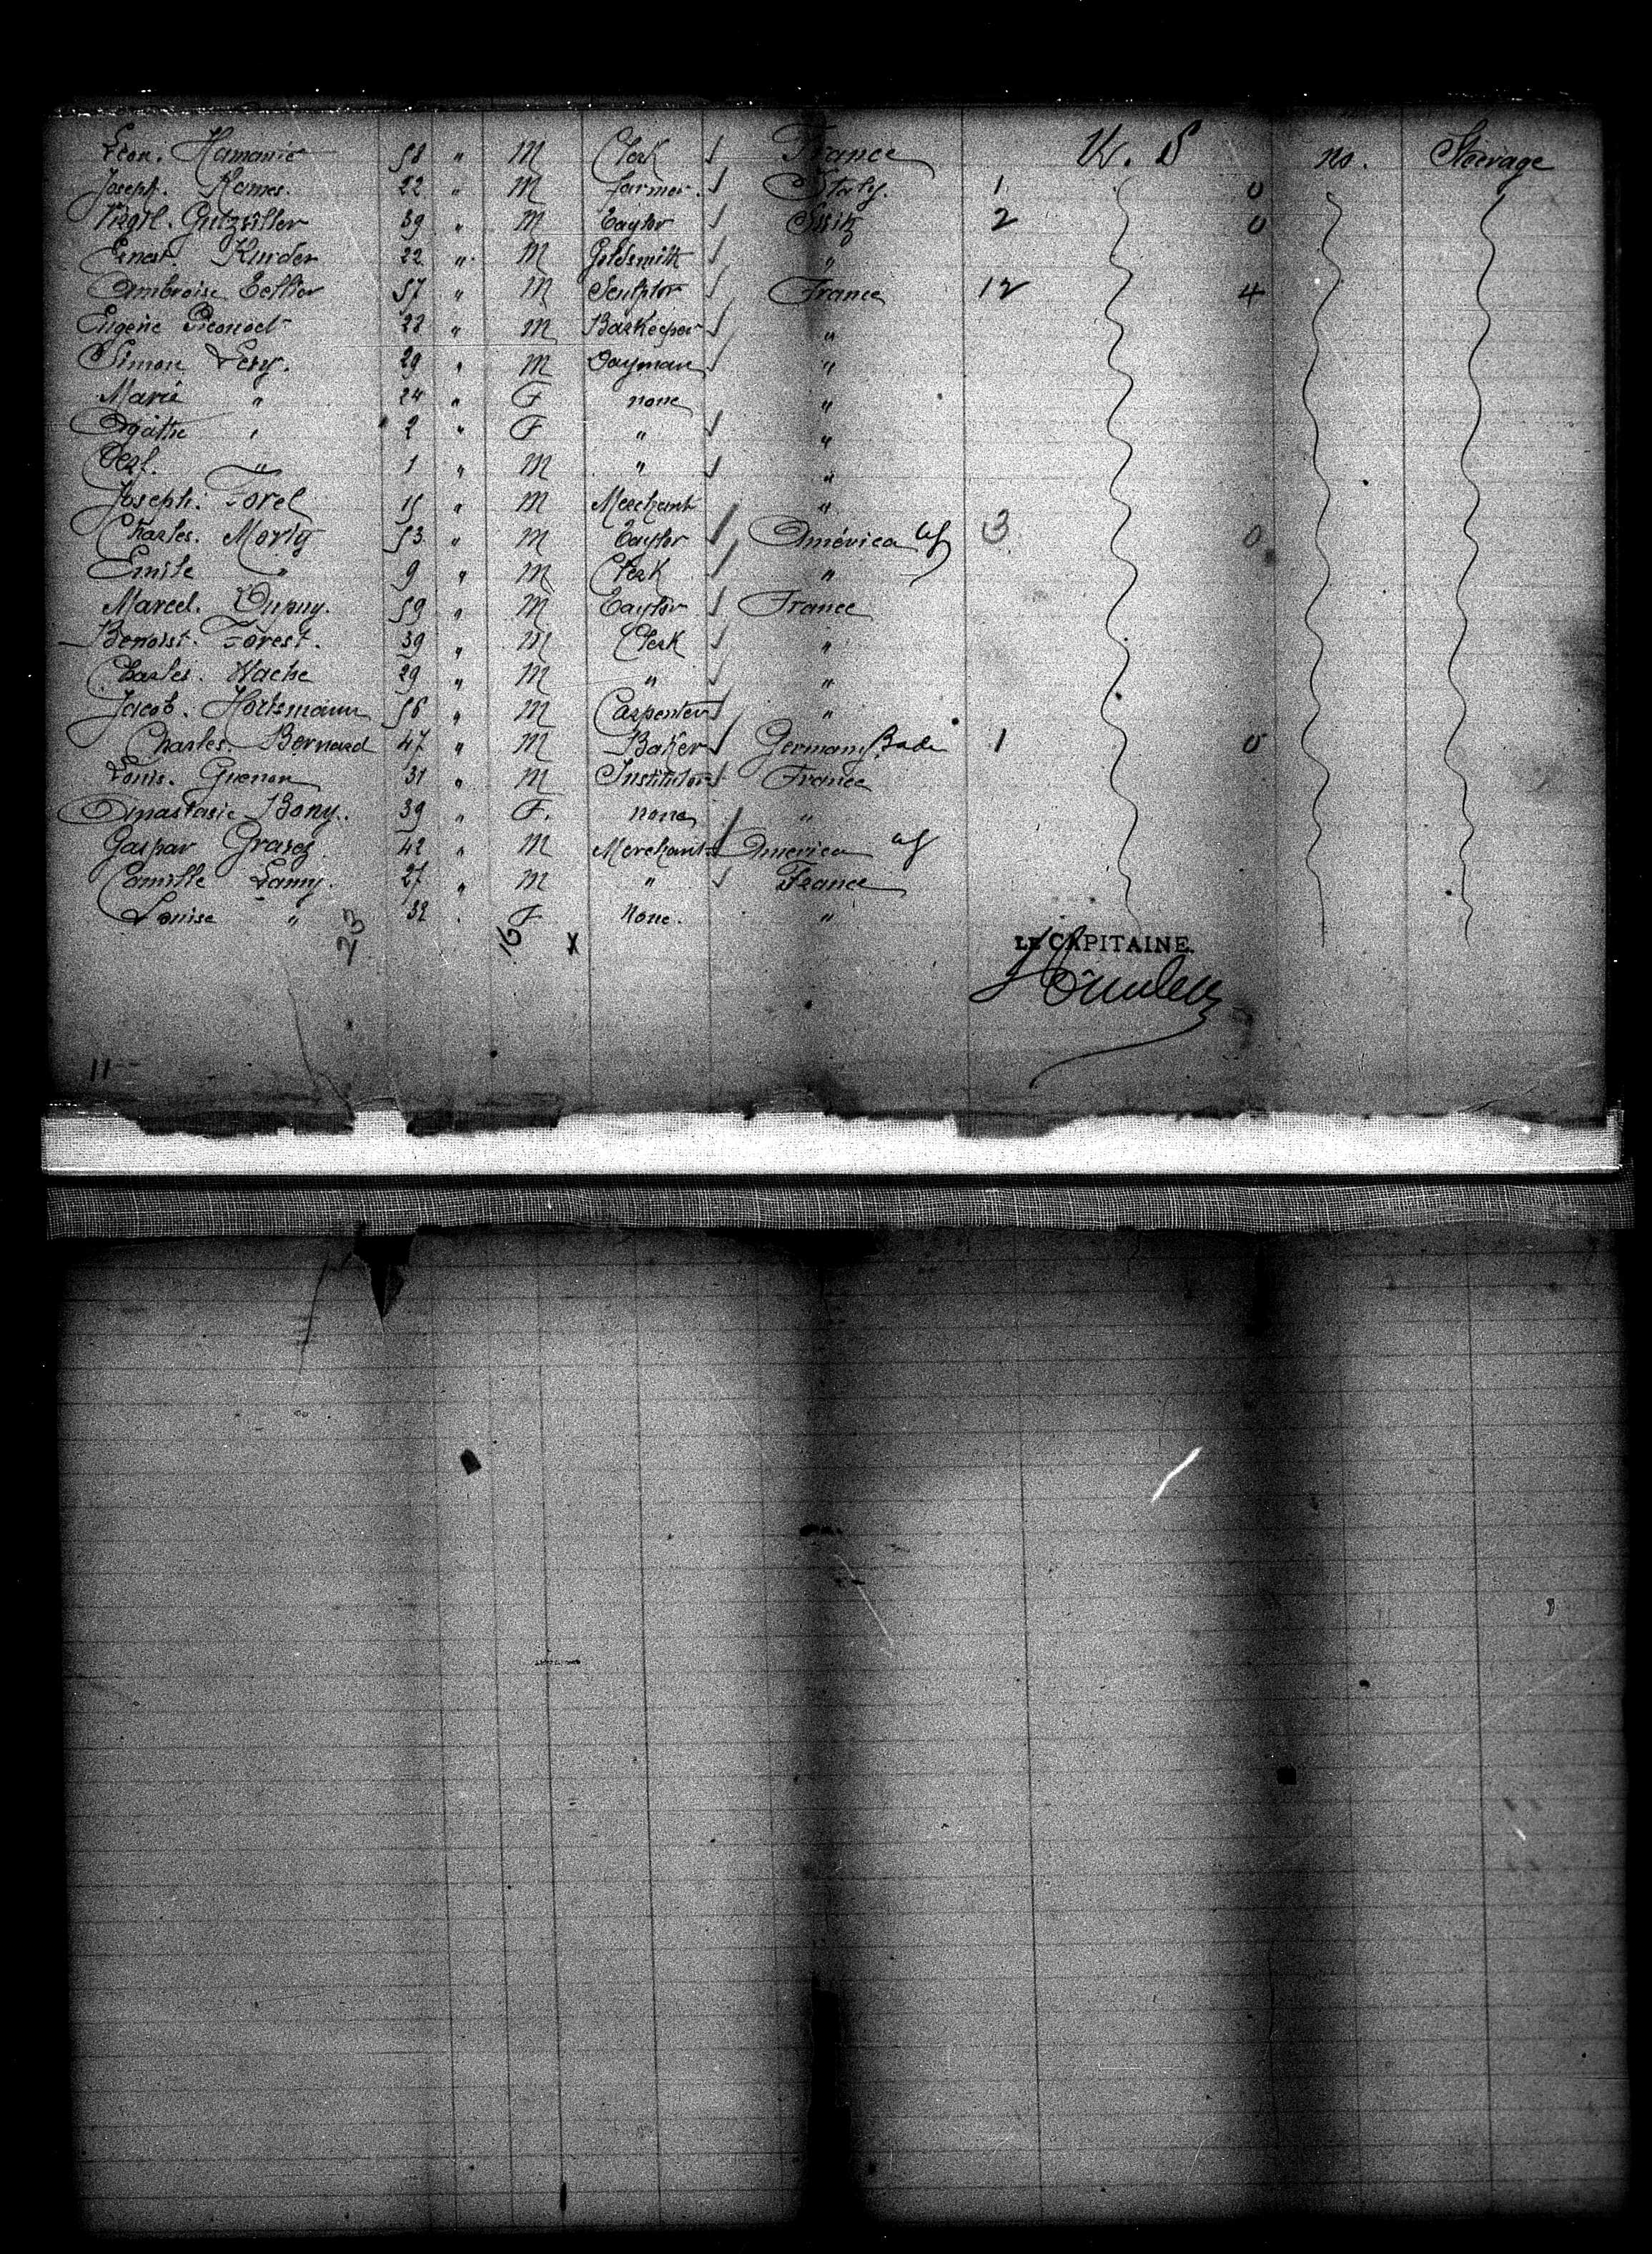 Léon. Hamanic 58 " M Clerk France U. S no. Steerage
Joseph. Hames. 22 " M farmer. Italy. 1 0
Virgil. Gutzviller 39 " M Taylor Switz 2 0
Ernest. Kurder 22 " M Goldsmith "
Ambroise Tellier 57 " M Sculptor France 12 4
Eugène 28 " M Barkeeper "
Simon Levy. 29 " M Dayman "
Marie " 24 " F none "
Agathe " 2 " F " "
Cerf. " 1 " M " "
Joseph. Forel 15 " M Merchant "
Charles. Morly 53 " M Taylor América 3 0
Emile " 9 " M Clerk "
Marcel. Dupuy. 59 " M Taylor France
Benoist. Forest. 39 " M Clerk "
Charles. Wache 29 " M " "
Jacob. Hortsmann 56 " M Carpenter "
Charles. Bernard 47 " M Baker Germany Bade 1 0
Louis. Guenon 31 " M Institutor France
Anastasie Bony. 39 " F. none "
Gaspar Grasez 42 " M Merchant America
Camille Lanny. 27 " M " France
Louise " 32 . F None. "
23 16 x
LE CAPITAINE.
11